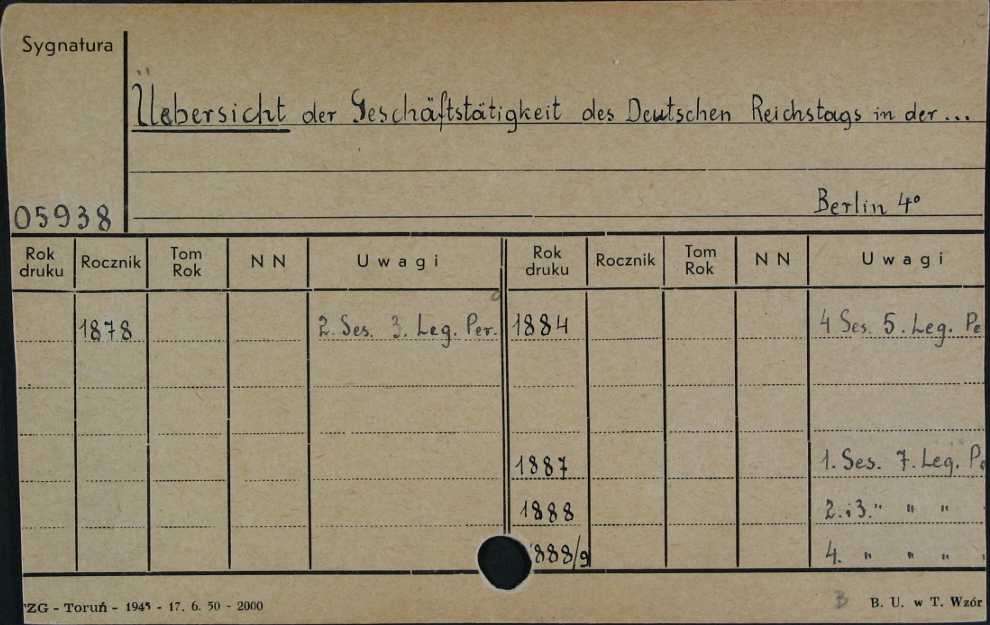 Sygnatura
Uebersicht der Geschäftstätigkeit des Deutschen Reichstags in der...
Berlin 4°
05938
Rok druku Rocznik Tom Rok N N Uwagi Rok druku Rocznik Tom Rok N N Uwagi
1878 2. Ses. 3. Leg. Per. 1884 4 Ses. 5. Leg. Pe
1887 1. Ses. 7. Leg. P
1888 2. i 3. " " "
888/9 4. " " "
ZG - Toruń - 1945 - 17. 6. 50 - 2000 B B. U. w T. Wzór